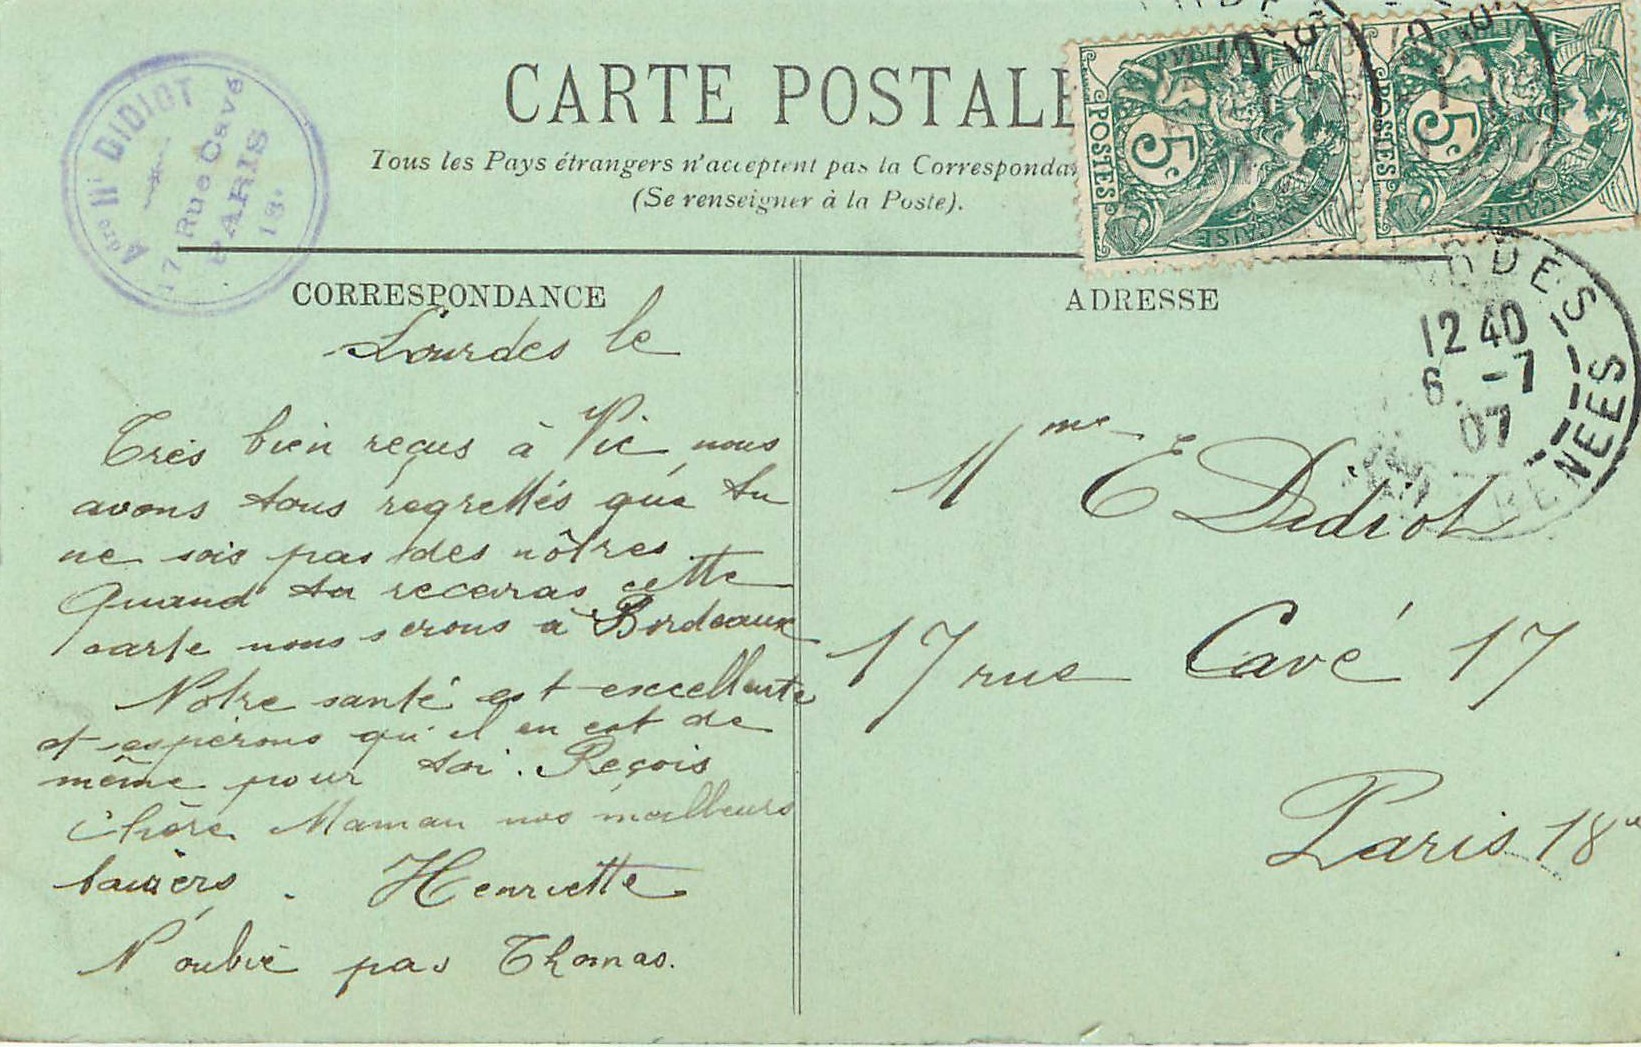 CARTE POSTALE
Tous les Pays étrangers n'acceptent pas la Correspondan
(Se renseigner à la Poste).
DIDIOT
17 Rue Cavé
PARIS
18e
POSTES
5c
POSTES
5c
CORRESPONDANCE
Lourdes le
Très bien reçus à Vic nous
avons tous regrettés que tu
ne sois pas des nôtres
Quand tu receiras cette
carte nous serons à Bordeaux
Notre santé est excellente
et espérons qu'il en est de
même pour toi. Reçois
chère Maman nos meilleurs
baisers. Henriette
N'oublie pas Thomas.
ADRESSE
12 40
6 -7
07
Mme E Didiot
17 rue Cavé 17
Paris 18e